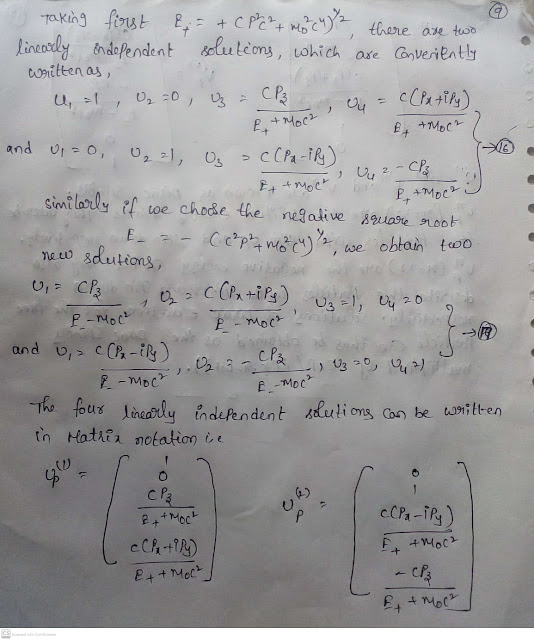 9
Taking first E₊ = + (P²c² + m₀²c⁴)^½, there are two
linearly independent solutions, which are conveniently
written as,
u₁ = 1 , U₂ = 0 , U₃ = CP₃/(E₊ + m₀c²) , U₄ = c(Px + iPy)/(E₊ + m₀c²)
and U₁ = 0, U₂ = 1, U₃ = c(Px - iPy)/(E₊ + m₀c²), U₄ = - CP₃/(E₊ + m₀c²) → 16
Similarly if we choose the negative square root
E₋ = - (c²p² + m₀²c⁴)^½, we obtain two
new solutions,
U₁ = CP₃/(E₋ - m₀c²) , U₂ = c(Px + iPy)/(E₋ - m₀c²), U₃ = 1, U₄ = 0
and U₁ = c(Px - iPy)/(E₋ - m₀c²), U₂ = - CP₃/(E₋ - m₀c²), U₃ = 0, U₄ = 1
The four linearly independent solutions can be written
in Matrix notation i.e
(1) = ( 1 0 CP₃/(E₊ + m₀c²) c(Px + iPy)/(E₊ + m₀c²) ) Up(2) = ( 0 1 c(Px - iPy)/(E₊ + m₀c²) - CP₃/(E₊ + m₀c²) )
Scanned with CamScanner